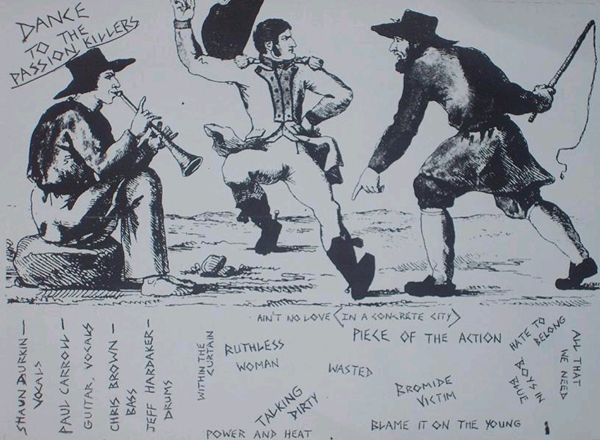 DANCE
TO THE
PASSION KILLERS
SHAUN DURKIN—
VOCALS
PAUL CARROLL—
GUITAR, VOCALS
CHRIS BROWN—
BASS
JEFF HARDAKER—
DRUMS
AIN'T NO LOVE <IN A CONCRETE CITY>
WITHIN THE
CURTAIN
RUTHLESS
WOMAN
PIECE OF THE ACTION
WASTED
HATE TO
BELONG
BOYS IN
BLUE
ALL THAT
WE NEED
TALKING
DIRTY
BROMIDE
VICTIM
POWER AND HEAT
BLAME IT ON THE YOUNG